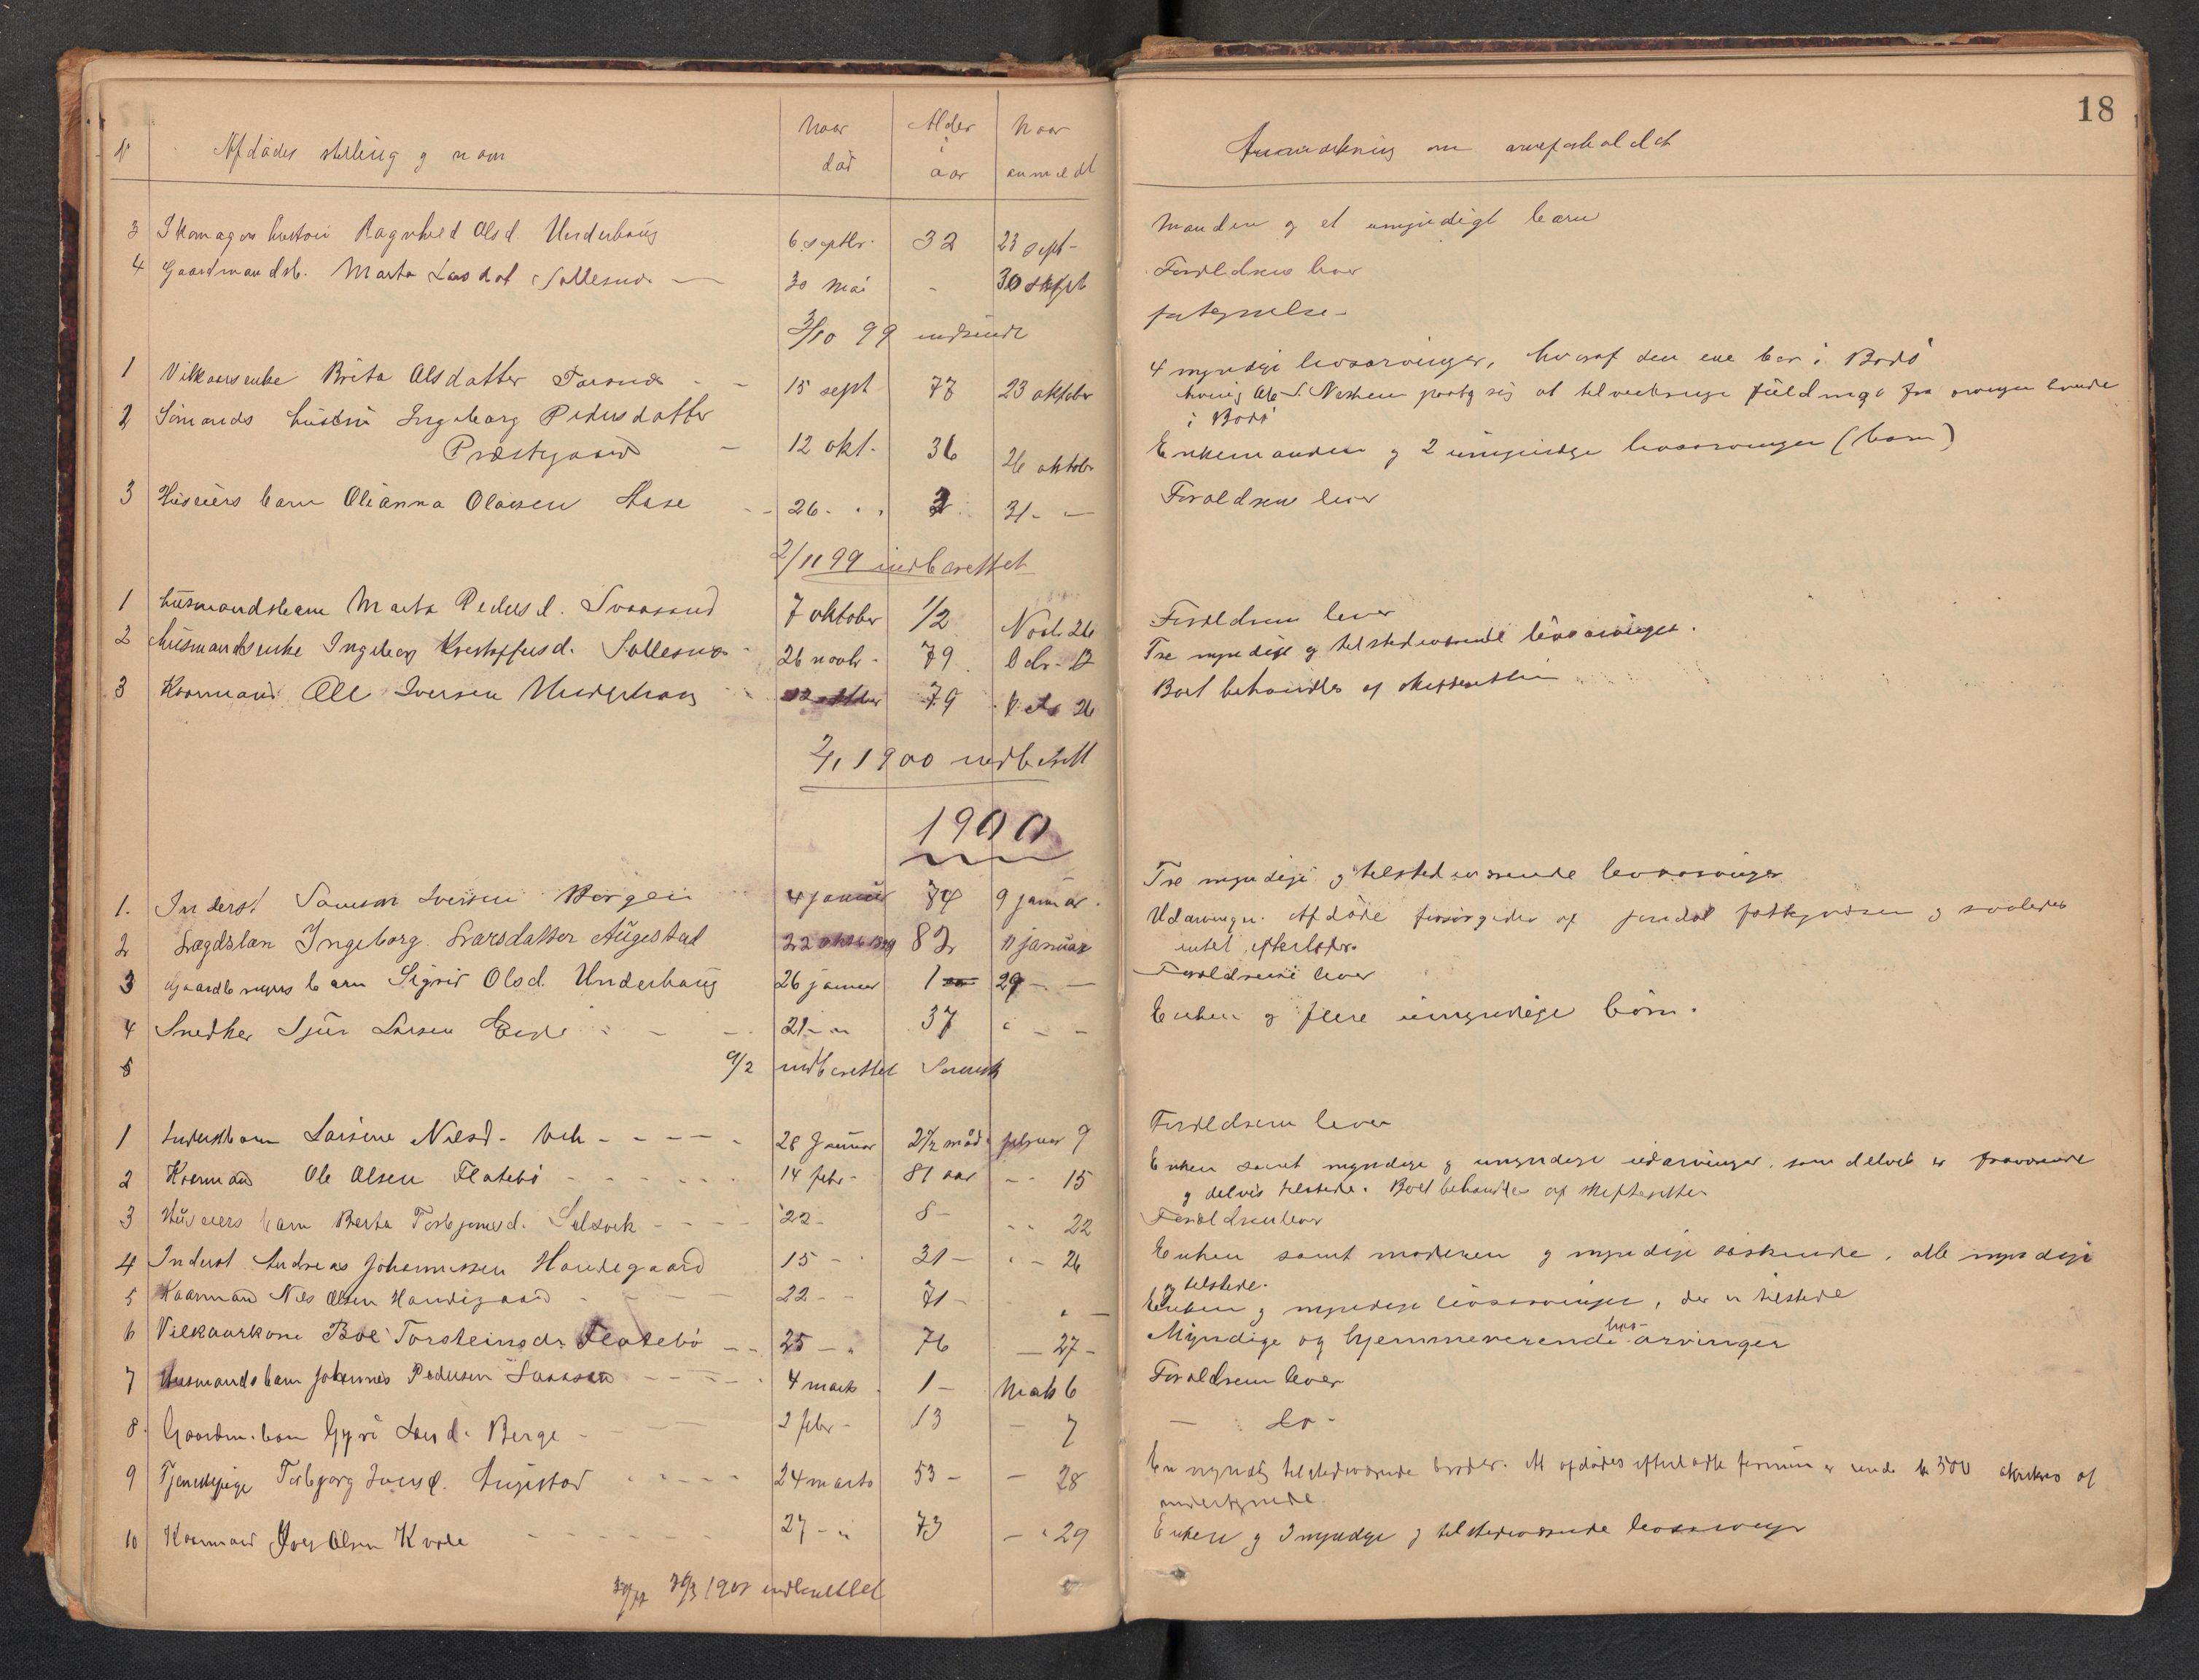 18
N Afdødes stilling og navn Naar død Alder i aar Naar anmeldt Anmærkning om arveforholdet
3 Skomagers hustru Ragnhild Olsd. Underhaug 6 septbr. 32 23 sept - Manden og et umyndigt barn
4 Gaardmandsb. Marta Larsdat Sollesnes — 30 mai - 30 sept Forældrene lever
3/10 99 indsendt
1 Vilkaarsenke Brita Olsdatter 15 sept 77 23 oktober 4 myndige livsarvinger, hvoraf den ene bor i Bodø
hvorfor Ole S. Neshem paatog sig at tilveiebringe fuldmagt fra arvingen boende
i Bodø
2 Sømands hustru Ingeborg Pedersdatter
Præstegaard — 12 okt. 36 26 oktober Enkemanden og 2 umyndige livsarvinger (børn)
3 Huseiers barn Olianna Olavsen Aase 26 - 2 31 - Forældrene lever
2/11 99 indberettet
1 husmandsbarn Marta Pedersd. Svaasand 7 oktober 1/2 Novb. 26 Forældrene lever
2 husmandsenke Ingeborg Kristoffersd. Sollesnes 26 novbr - 79 Dcbr. 12 Tre myndige og tilstedeværende livsarvinger.
3 Kaarmand Ole Iversen Underhaug 79 26 Boet behandles af skifteretten
2/1 1900 indberett
1900
1. Inderst Samson Iversen Borgen 4 januar 74 9 januar. Tre myndige og tilstedeværende livsarvinger
2 Lægdslem Ingeborg Larsdatter Augestad 22 oktob 1899 82 11 januar Udarvinger. Afdøde forsørgedes af fattigvæsen og saaledes
intet efterlader.
3 Gaardbrugers barn Sigrid Olsd. Underhaug 26 januar 1 29 - — Forældrene lever
4 Snedker Sjur Larsen Eide 21 - " 37 Enken og flere umyndige børn.
5 9/2 indberettet
1 Inderstbarn Larsine Nilsd. Vik 28 Januar 2 1/2 mdr februar 9 Forældrene lever
2 Kaarmand Ole Olsen Flatebø 14 febr - 81 aar - 15 Enken samt myndige og umyndige udarvinger, som delvis er fraværende
og delvis tilstede. Boet behandles af skifteretten
3 Huseiers barn Berta Torbjørnsd. Selsvik 22 - 8 - 22 Forældrene lever
4 Inderst Andreas Johannessen Handegaard 15 - 31 - 26 Enken samt moderen og myndige søskende, alle myndige
og tilstede.
5 Kaarmand Nils Olsen Handegaard 22 - 71 - Enken og myndige livsarvinger, der er tilstede
6 Vilkaarkone Boe Torsteinsdr Flatebø 25 - " 76 — 27 - Myndige og hjemmeværende livs-arvinger
7 Husmandsbarn Johannes Pedersen 4 marts 1 - Mats 6 Forældrene lever
8. Gaardm. barn Gyri Larsd. Berge 2 febr - 13 - 7 — Do -
9 Tjenestepige Torbjørg Iversd. Augestad 24 marts 53 - - 28 En myndig tilstedeværende broder. At afdødes efterladte formue er under kr 500 af
undertegnede.
10 Kaarmand Iver Olsen Kvale 27 - " 73 - " 29 Enken og 3 myndige og tilstedeværende livsarvinger
30/3 1900 indberettet